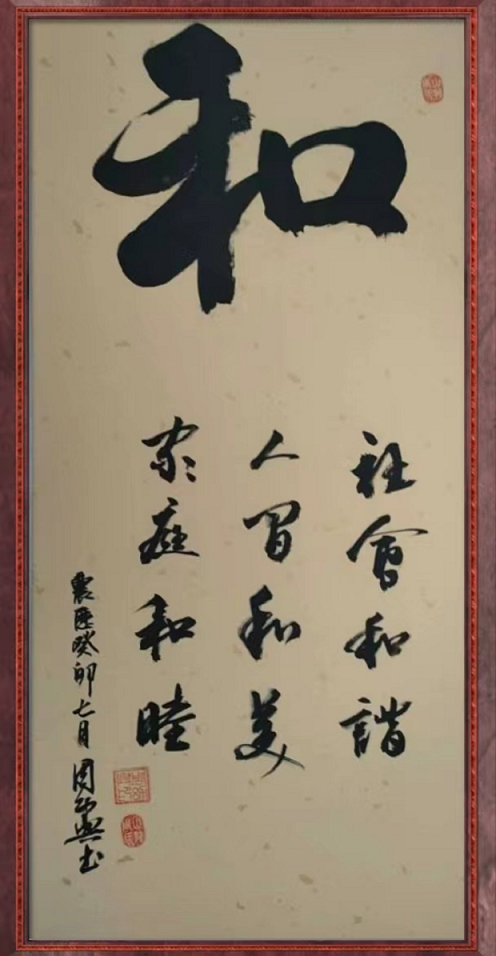 和
社會和諧
人間和美
家庭和睦
農歷癸卯七月